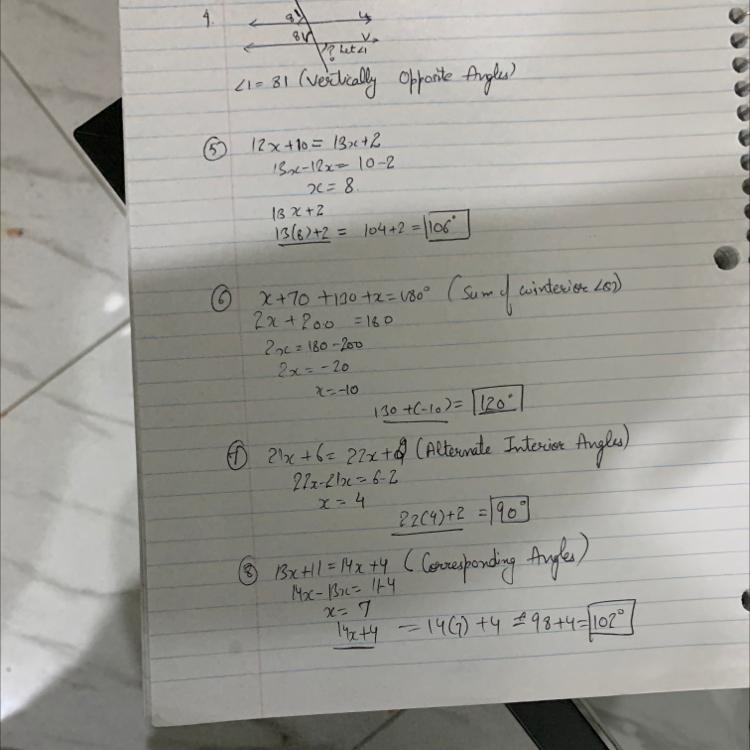 4.
81
81
? let ∠1
∠1 = 81 (Vertically Opposite Angles)
⑤ 12x+10 = 13x+2
13x-12x = 10-2
x = 8
13x+2
13(8)+2 = 104+2 = 106°
⑥ x+70+130+x=180° (Sum of cointerior ∠s)
2x+200 = 180
2x = 180-200
2x = -20
x = -10
130+(-10) = 120°
⑦ 21x+6 = 22x+2 (Alternate Interior Angles)
22x-21x = 6-2
x = 4
22(4)+2 = 90°
⑧ 13x+11 = 14x+4 (Corresponding Angles)
14x-13x = 11-4
x = 7
14x+4 = 14(7)+4 = 98+4 = 102°